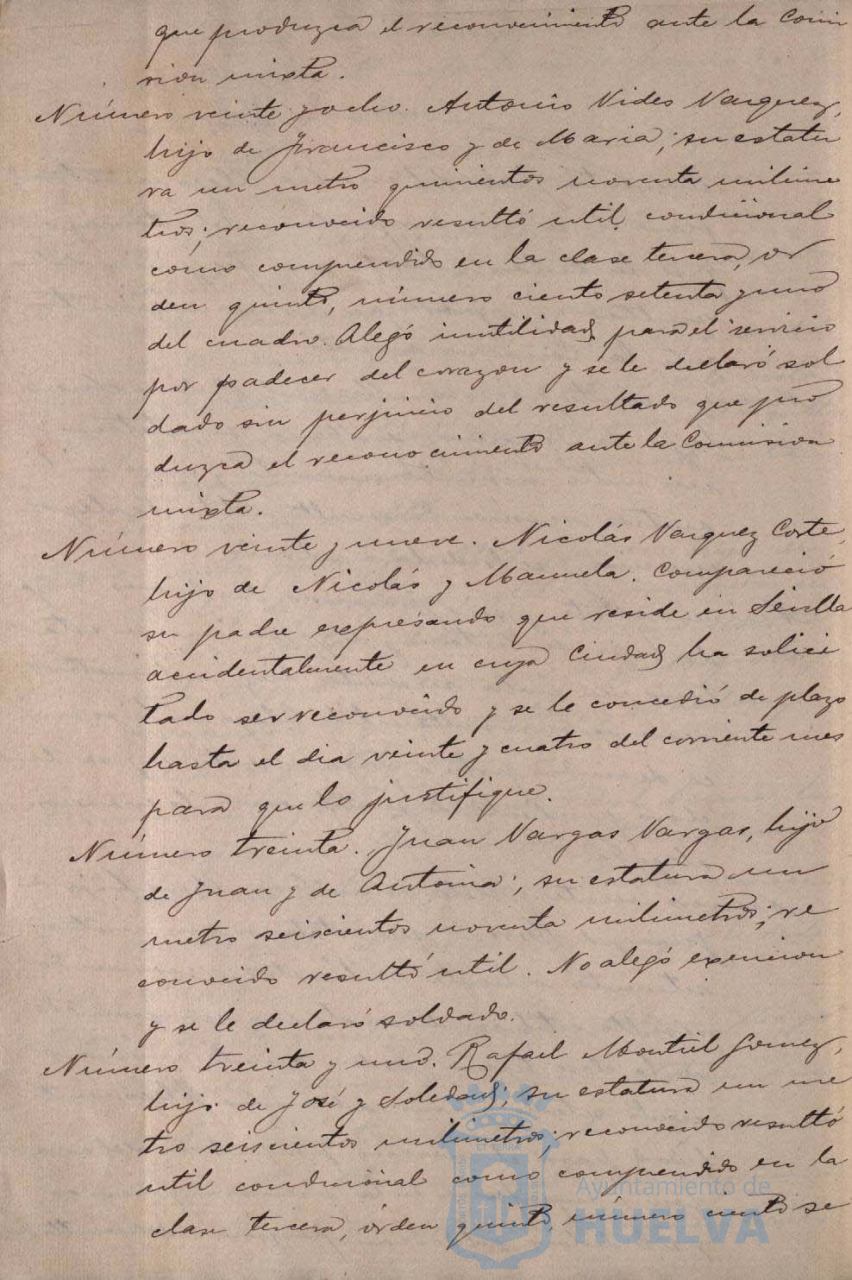 que produzca el reconocimiento ante la Comi
sion mixta.
Número veinte y ocho. Antonio Vides Vazquez,
hijo de Francisco y de Maria; su estatu
ra un metro quinientos noventa milime
tros; reconocido resultó util condicional
como comprendido en la clase tercera, or
den quinto, número ciento setenta y uno
del cuadro. Alegó inutilidad para el servicio
por padecer del corazon y se le declaró sol
dado sin perjuicio del resultado que pro
duzca el reconocimiento ante la Comision
mixta.
Número veinte y nueve. Nicolás Vazquez Corte,
hijo de Nicolás y Manuela. Compareció
su padre expresando que reside en Sevilla
accidentalmente en cuya Ciudad ha solici
tado ser reconocido y se le concedió de plazo
hasta el dia veinte y cuatro del corriente mes
para que lo justifique.
Número treinta. Juan Vargas Vargas, hijo
de Juan y de Antonia; su estatura un
metro seiscientos noventa milimetros; re
conocido resultó util. No alegó exencion
y se le declaró soldado.
Número treinta y uno. Rafael Montiel Gomez,
hijo de José y Soledad; su estatura un me
tro seiscientos milimetros; reconocido resultó
util condicional como comprendido en la
clase tercera, órden quinto, número ciento se
Ayuntamiento de
HUELVA